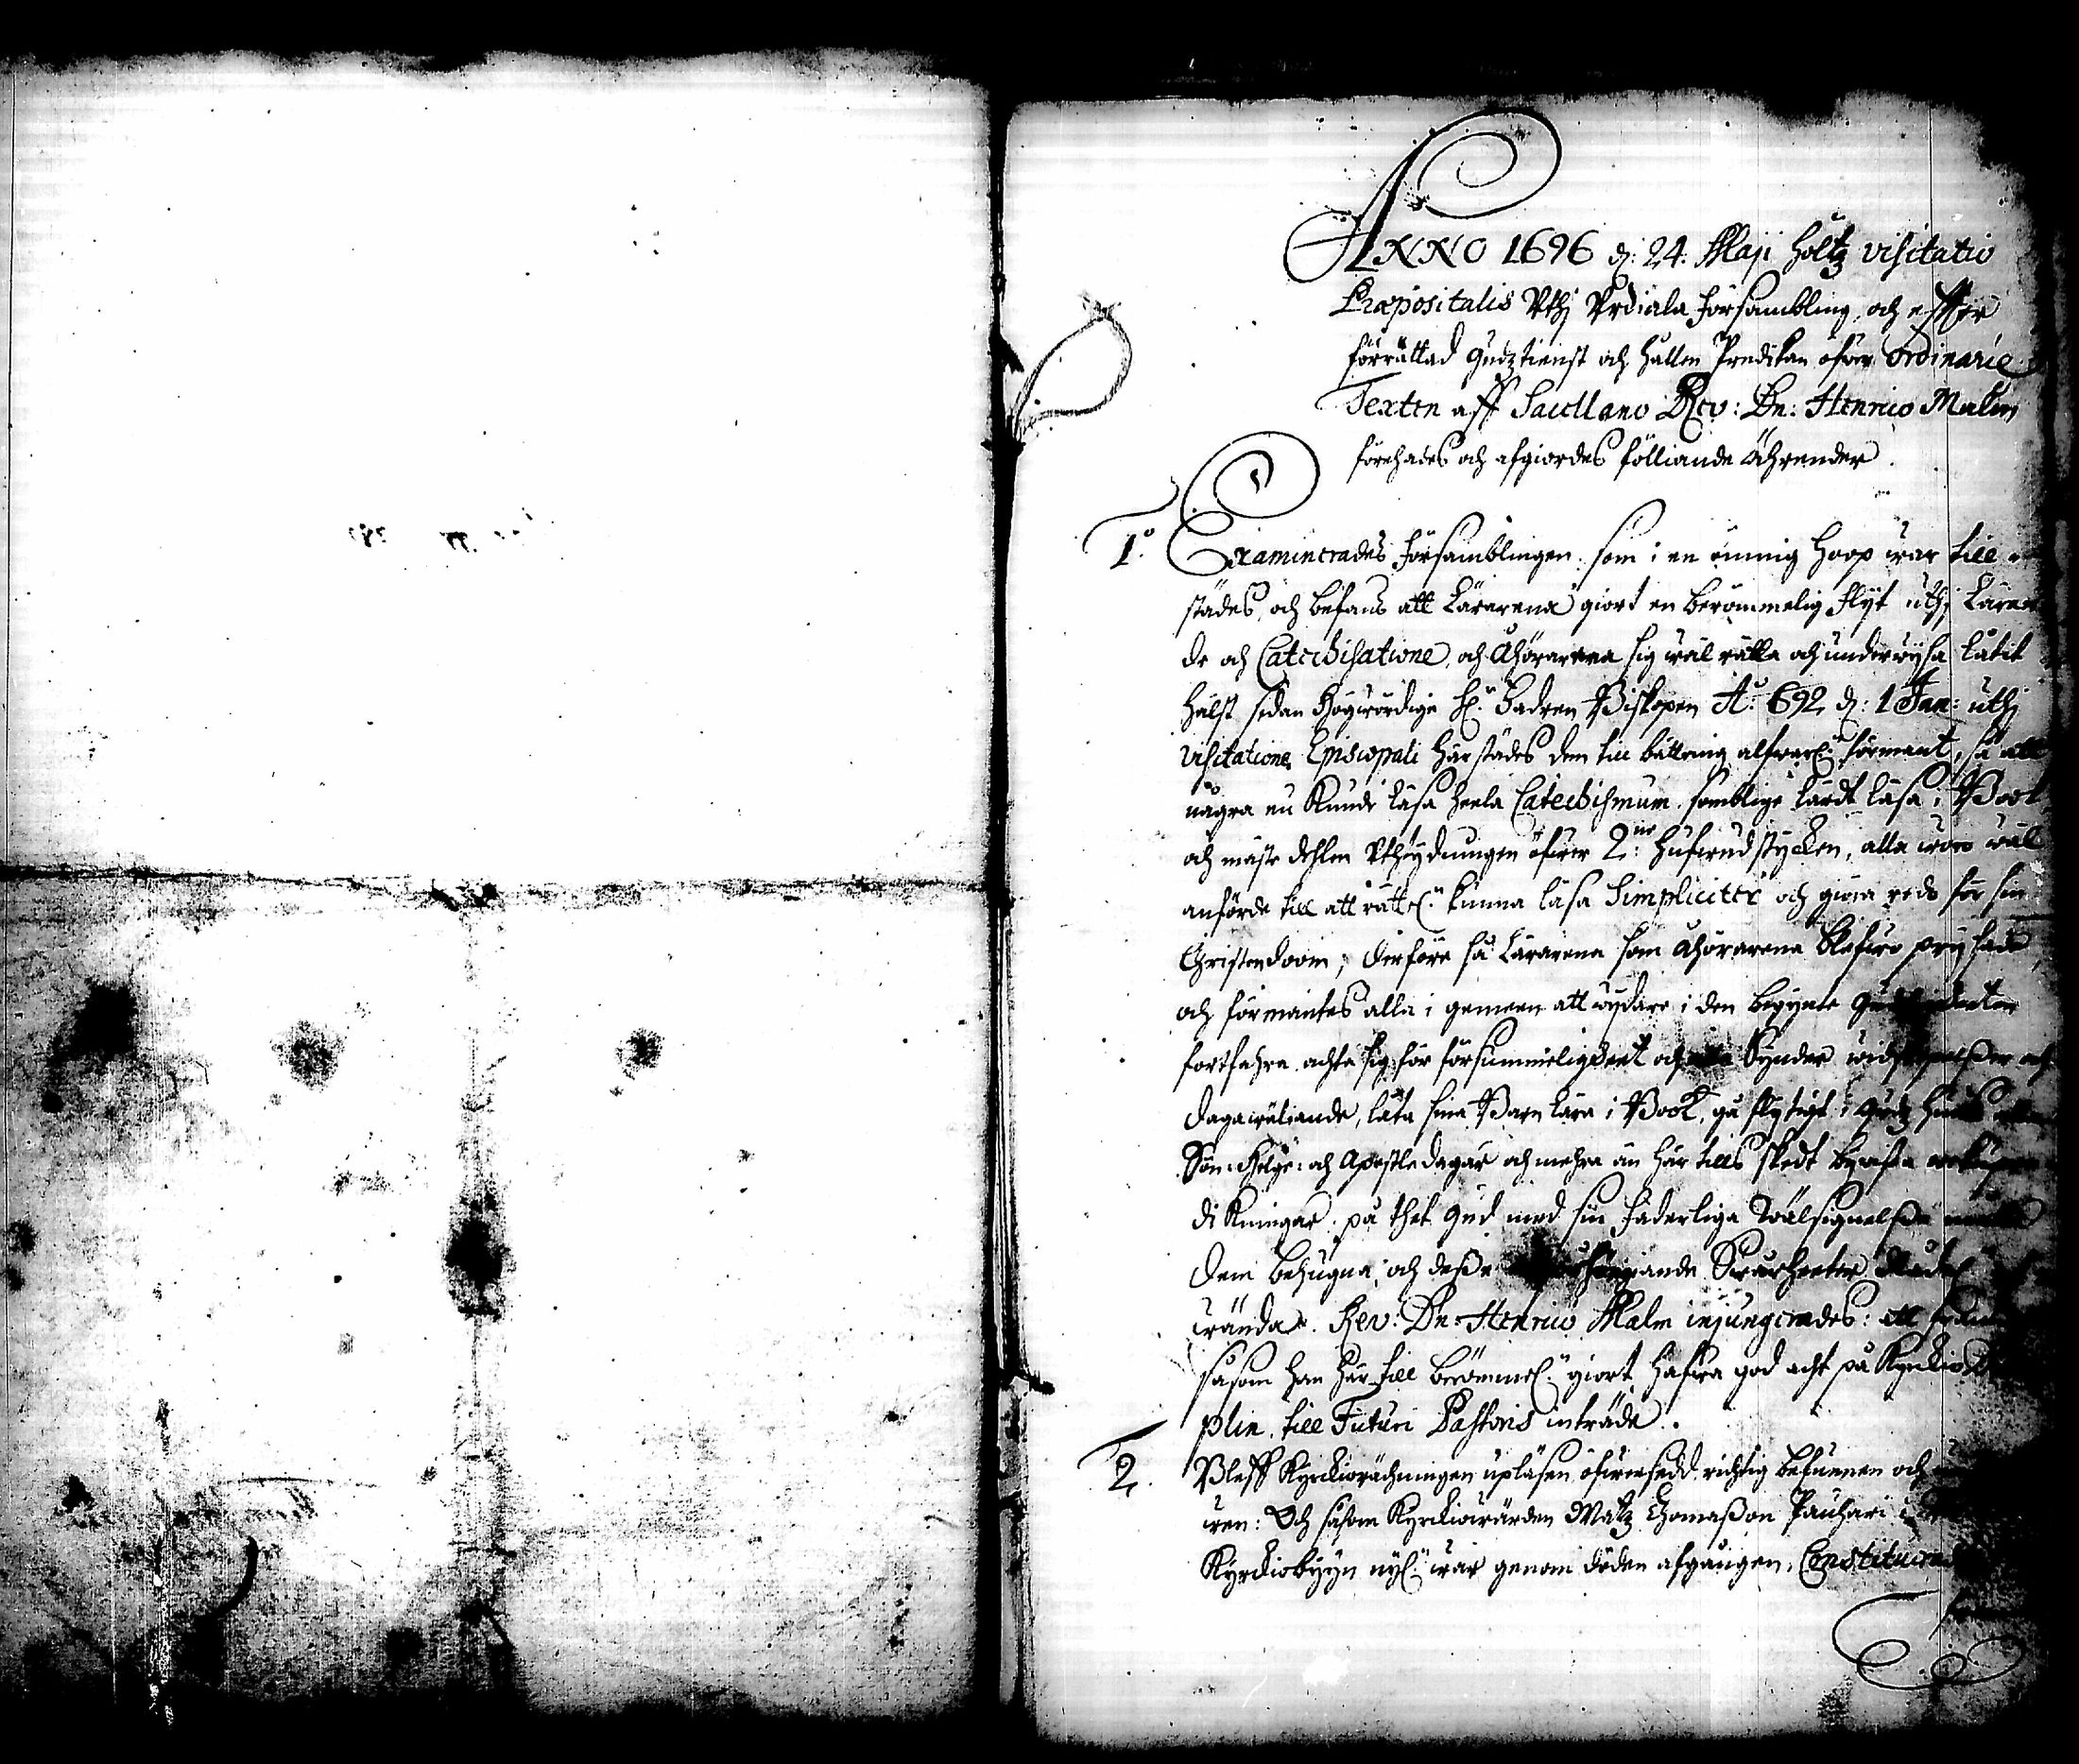 ANNO 1696 d: 24. Maji holtz visitatio
Præpositalis Vthi Vrdiala försambling, och effter
förrättad Gudztienst och hållen Predikan öfwer ordinarie
Texten aff Sacellano Rev: Dn: Henrico Malm
förehades och afgiordes fölliande ährender.
1:o Examinerades församblingen som i en ymnig hoop war till
städes, och befans att Lärarena giort en berömmelig flijt uthi Läran
de och Catechisatione, och Åhörarena sig wäl rätta och underwijsa låtit
hälst sedan Högwördige H: Fadren Biskopen A:o 692 d: 1 Jan: uthi
visitatione Episcopali här städes dem till bättring alfwarl: förmant, så att
några nu kunde läsa heela Catechismum somblige lärdt läsa i Book
och mäste dehlen Vthtydningen öfwer 2:ne hufwudstycken, alla woro wäl
anförde till att rättel: kunna läsa Simpliciter och giöra redo för sin
Christendoom; Derföre så Lärarena som Åhörarena blefwo prijsade
och förmantes alla i gemeen att wijdare i den begynte
fortfahra achta sig för försummeligheet och Synder
dagawäliande, låta sina Barn lära i Book, gå flijtigt i Gudz huus
Sön: Helge: och Apostledagar och mehra än här tills skedt bewista
dikningar på thet Gud med sin faderliga Wälsignelse
dem behugna, och desse Swårheeter
wända. Rev: Dn: Henrico Malm injungerades: att
såsom han här till berömmel: giort hafwa god acht på Kyrkio
plin, till Futuri Pastoris inträde.
2. Bleff Kyrkioräkningen upläsen öfwersedd richtig befunnen och
wen: Och såsom Kyrkiowärden Matz Thomasson Pauhari
Kyrkiobyyn nyl: war genom döden afgången, Constituerades